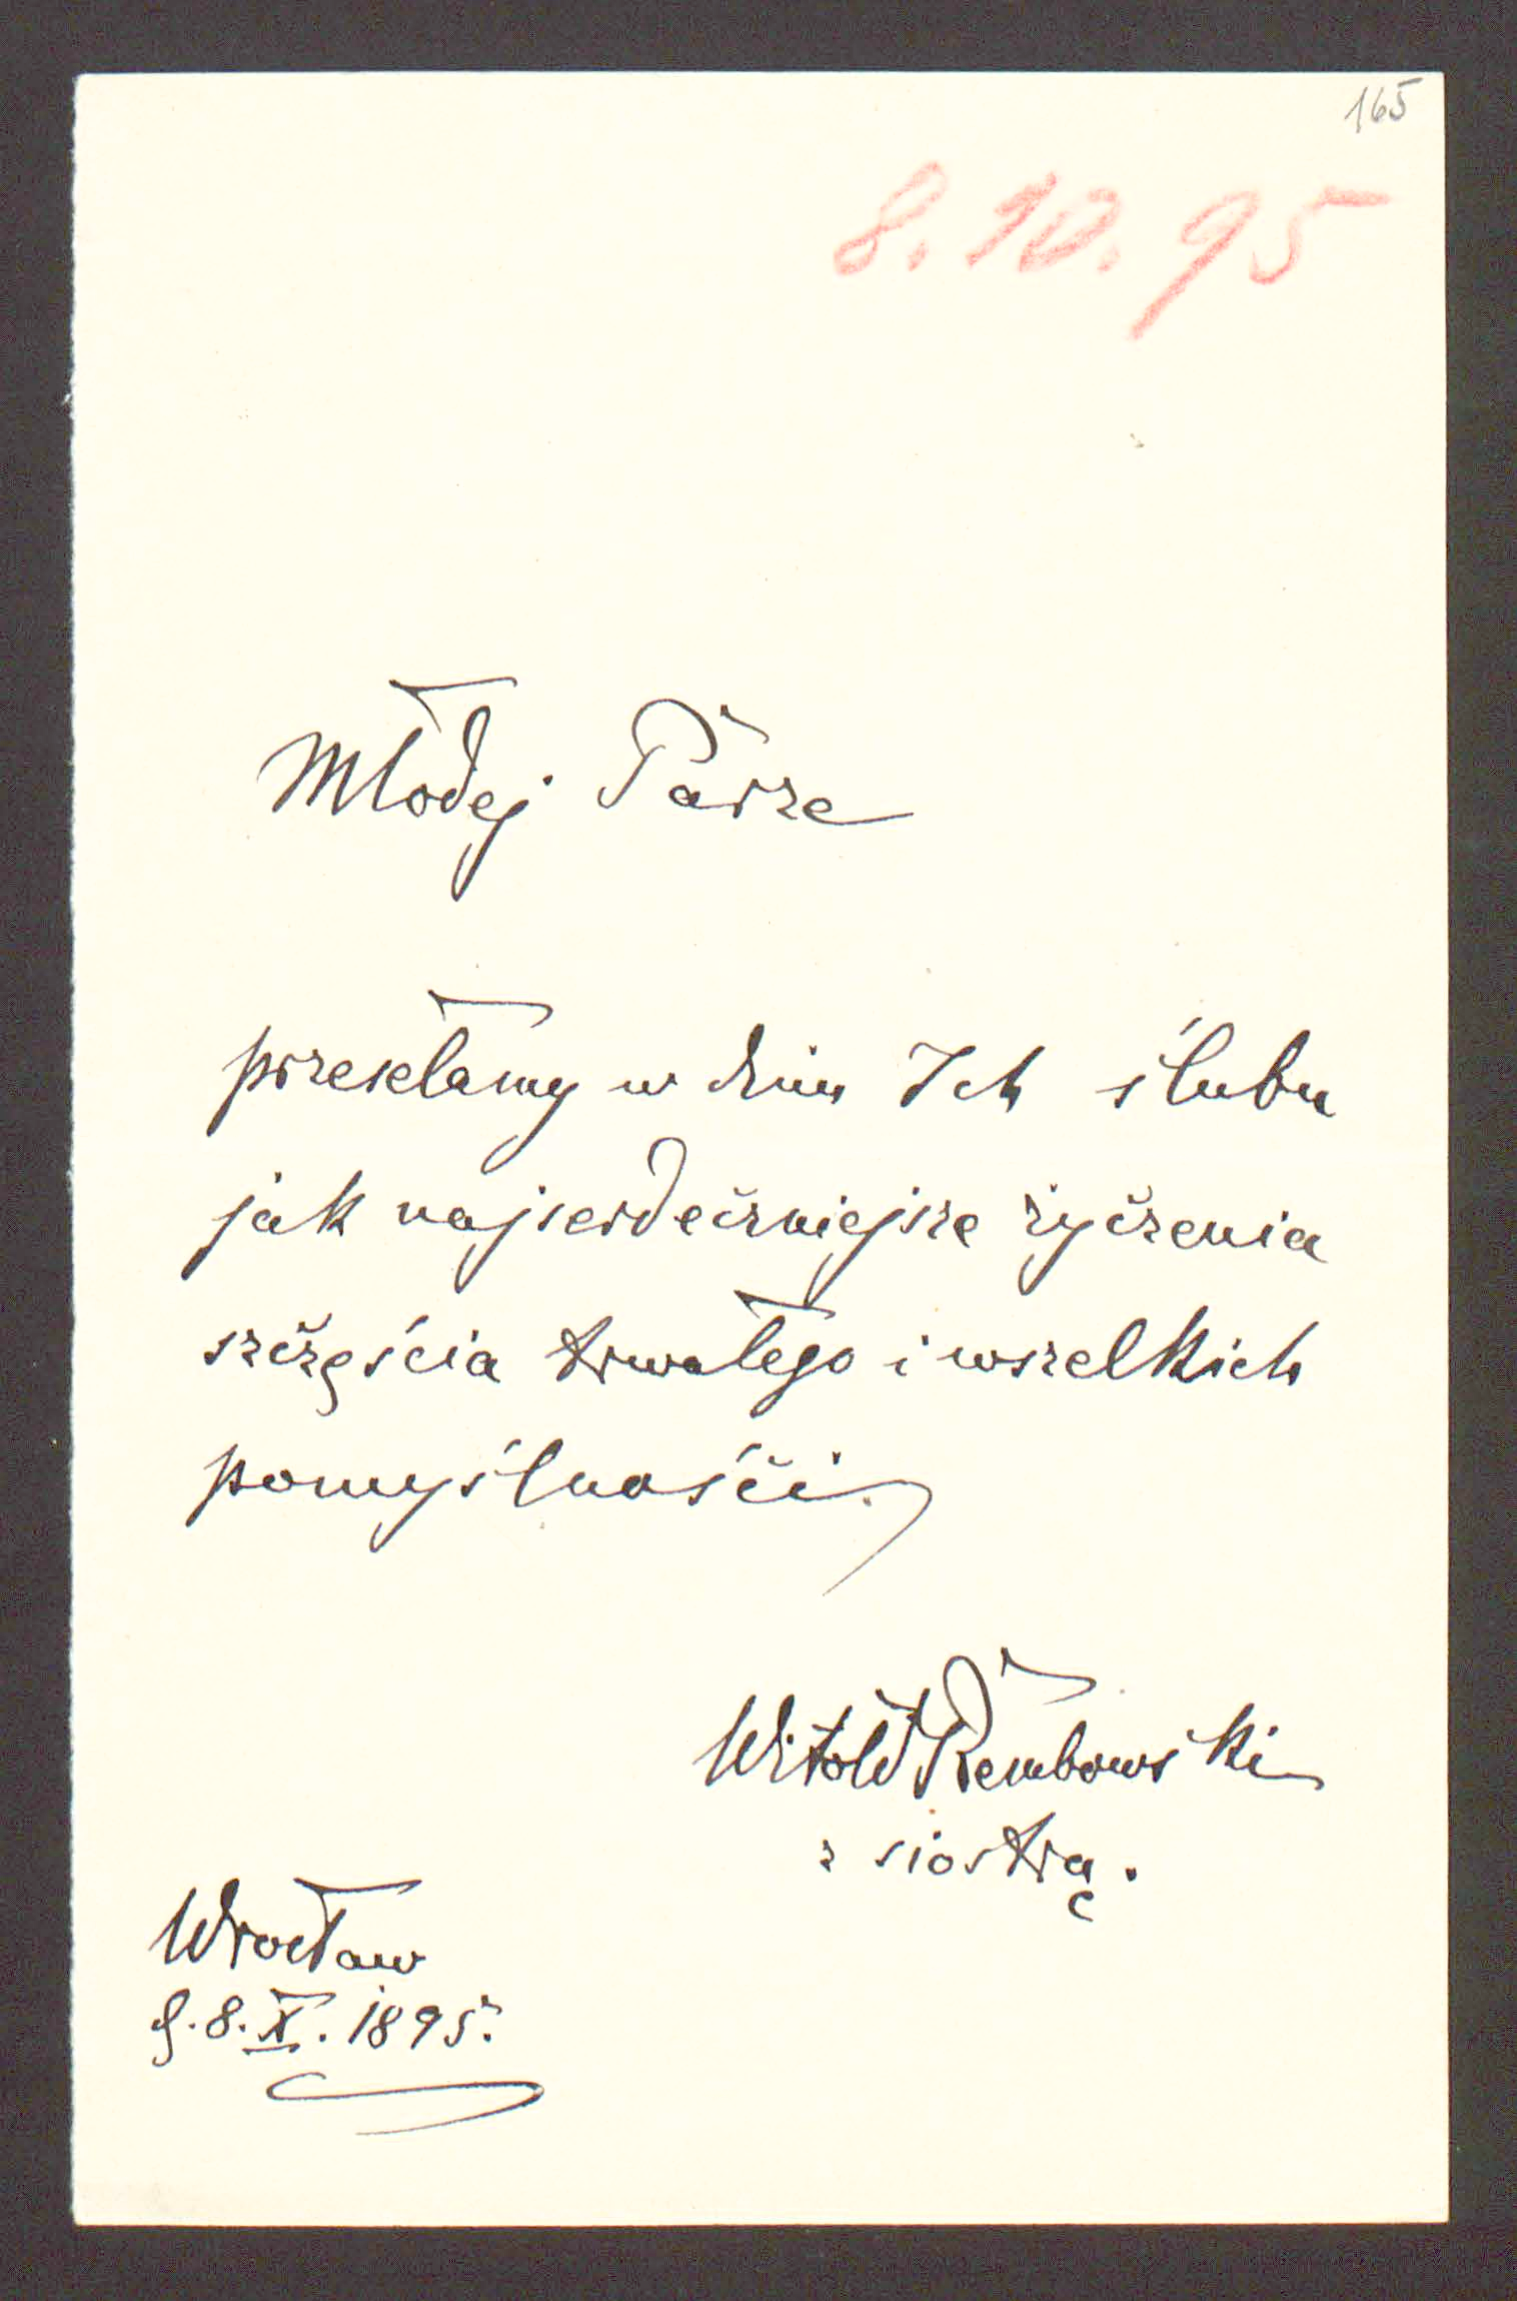 165
8.10.95
Młodej Parze
przesełamy w dniu Ich ślubu
jak najserdeczniejsze życzenia
szczęścia trwałego i wszelkich
pomyślności.
Witold Rembowski
z siostrą.
Wrocław
d. 8. X. 1895.